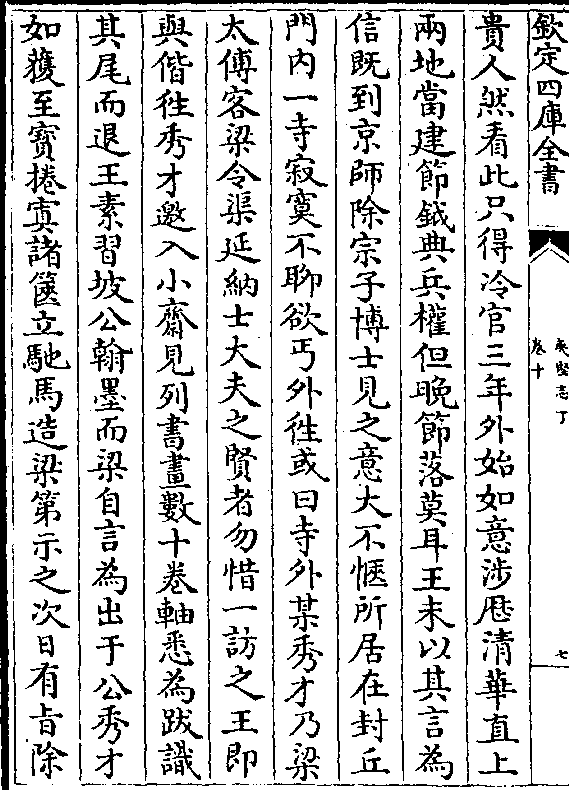 欽定四庫全書
夷堅志丁
卷十
七
貴人然看此只得冷官三年外始如意涉厯清華直上
兩地當建節鉞典兵權但晚節落莫耳王未以其言為
信既到京師除宗子博士見之意大不愜所居在封丘
門内一寺寂寞不聊欲丐外徃或曰寺外某秀才乃梁
太傅客梁令渠延納士大夫之賢者勿惜一訪之王即
與偕徃秀才邀入小齋見列書畫數十卷軸悉為跋識
其尾而退王素習坡公翰墨而梁自言為出于公秀才
如獲至寳捲寘諸篋立馳馬造梁第示之次日有㫖除